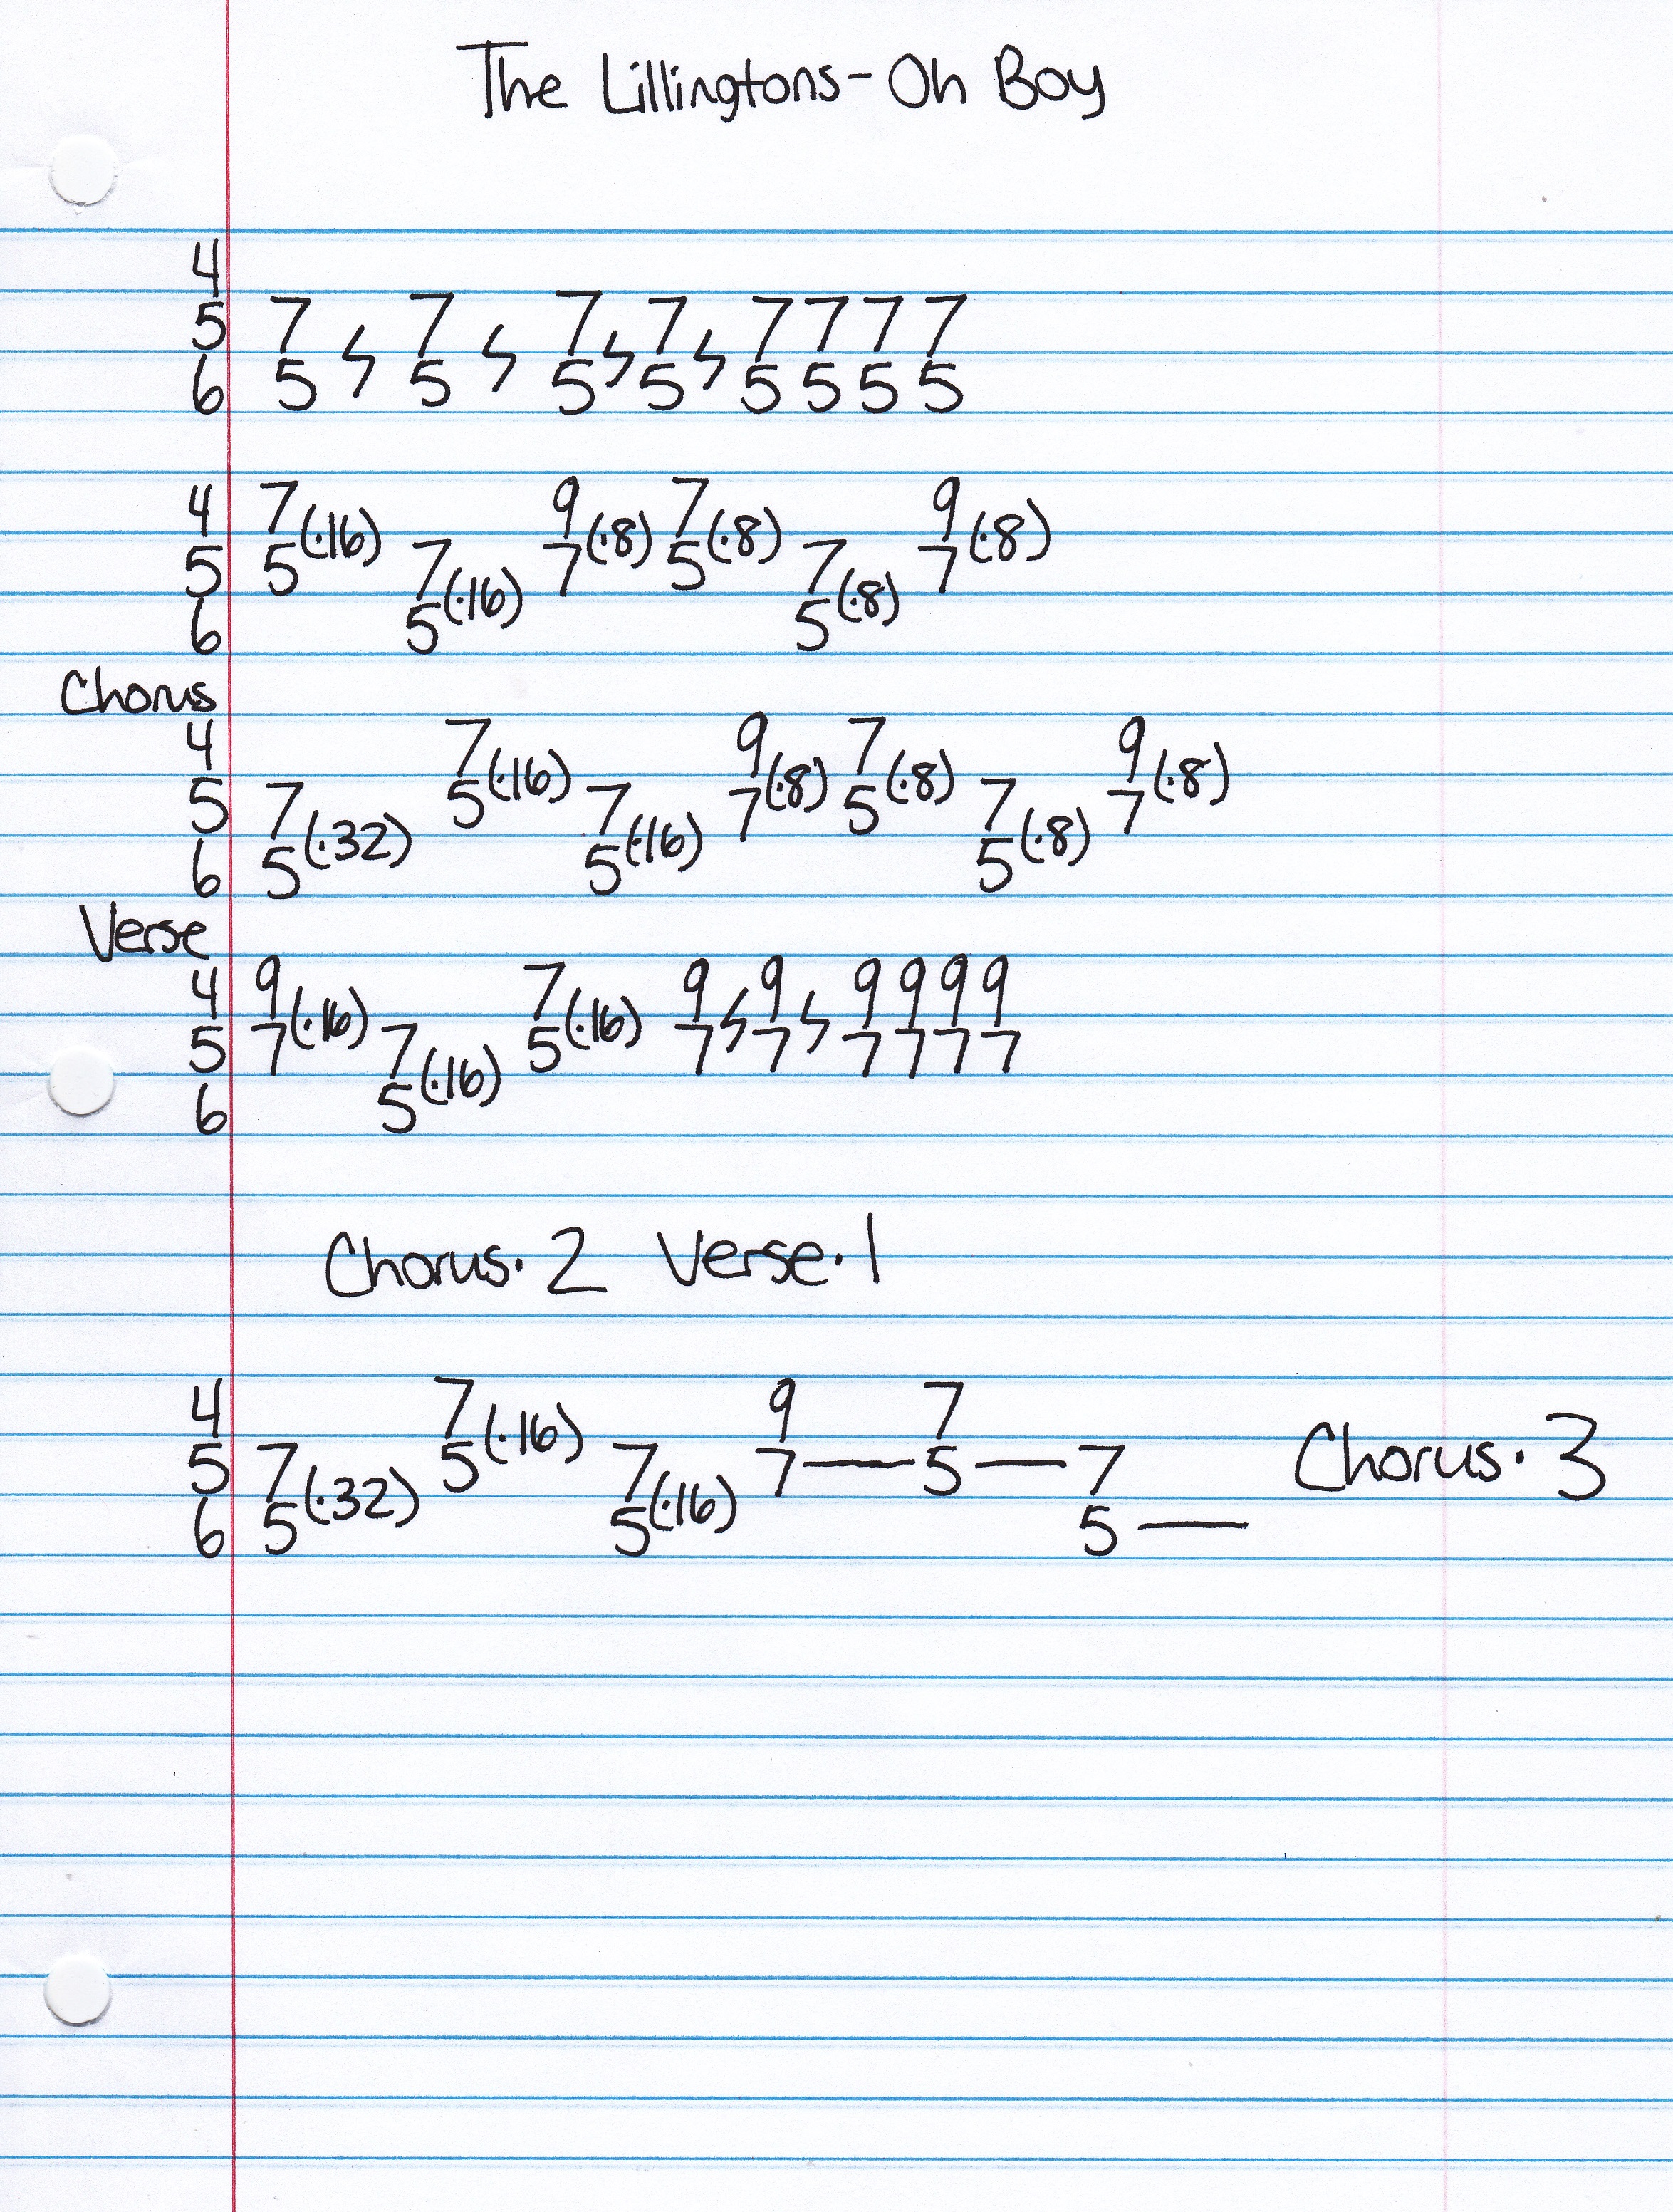 The Lillingtons - Oh Boy
4
5 7 7 7 7 7 7 7 7
6 5 5 5 5 5 5 5 5
4 7 (·16) 9 (·8) 7 (·8) 9 (·8)
5 5 7 (·16) 7 5 7 (·8) 7
6 5 5
Chorus
4 7 (·16) 9 (·8) 7 (·8) 9 (·8)
5 7 (·32) 5 7 (·16) 7 5 7 (·8) 7
6 5 5 5
Verse
4 9 (·16) 7 (·16) 9 9 9 9 9 9
5 7 7 (·16) 5 7 7 7 7 7 7
6 5
Chorus·2 Verse·1
4 7 (·16) 9 7
5 7 (·32) 5 7 (·16) 7 — 5 — 7 Chorus·3
6 5 5 5 —